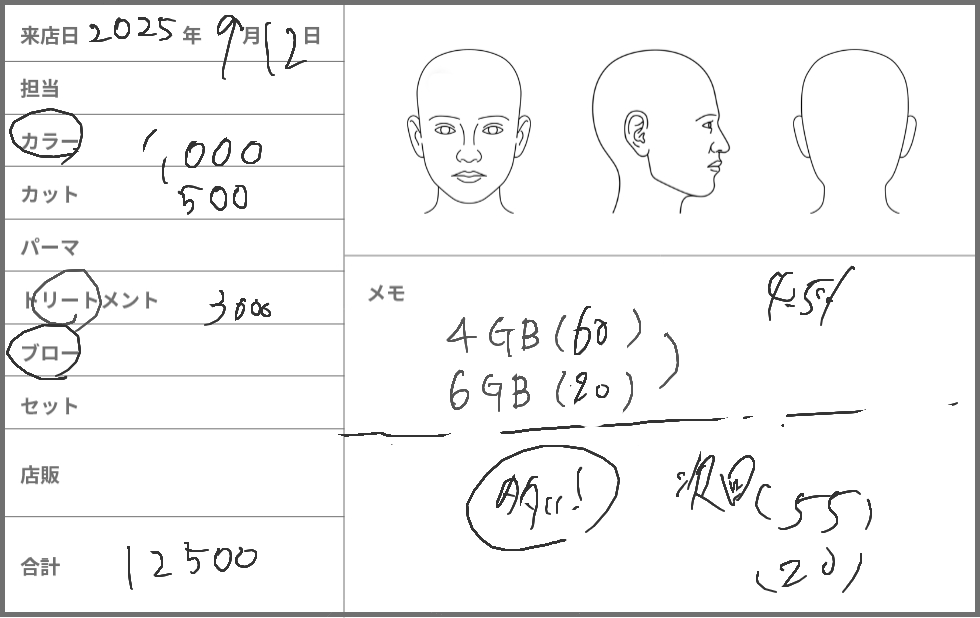 来店日 2025年 9月12日
担当
カラー 1,000
カット 500
パーマ
トリートメント 3000
ブロー
セット
店販
合計 12500
メモ
4.5%
4GB (60)
6GB (20)
次回 (55)
(20)